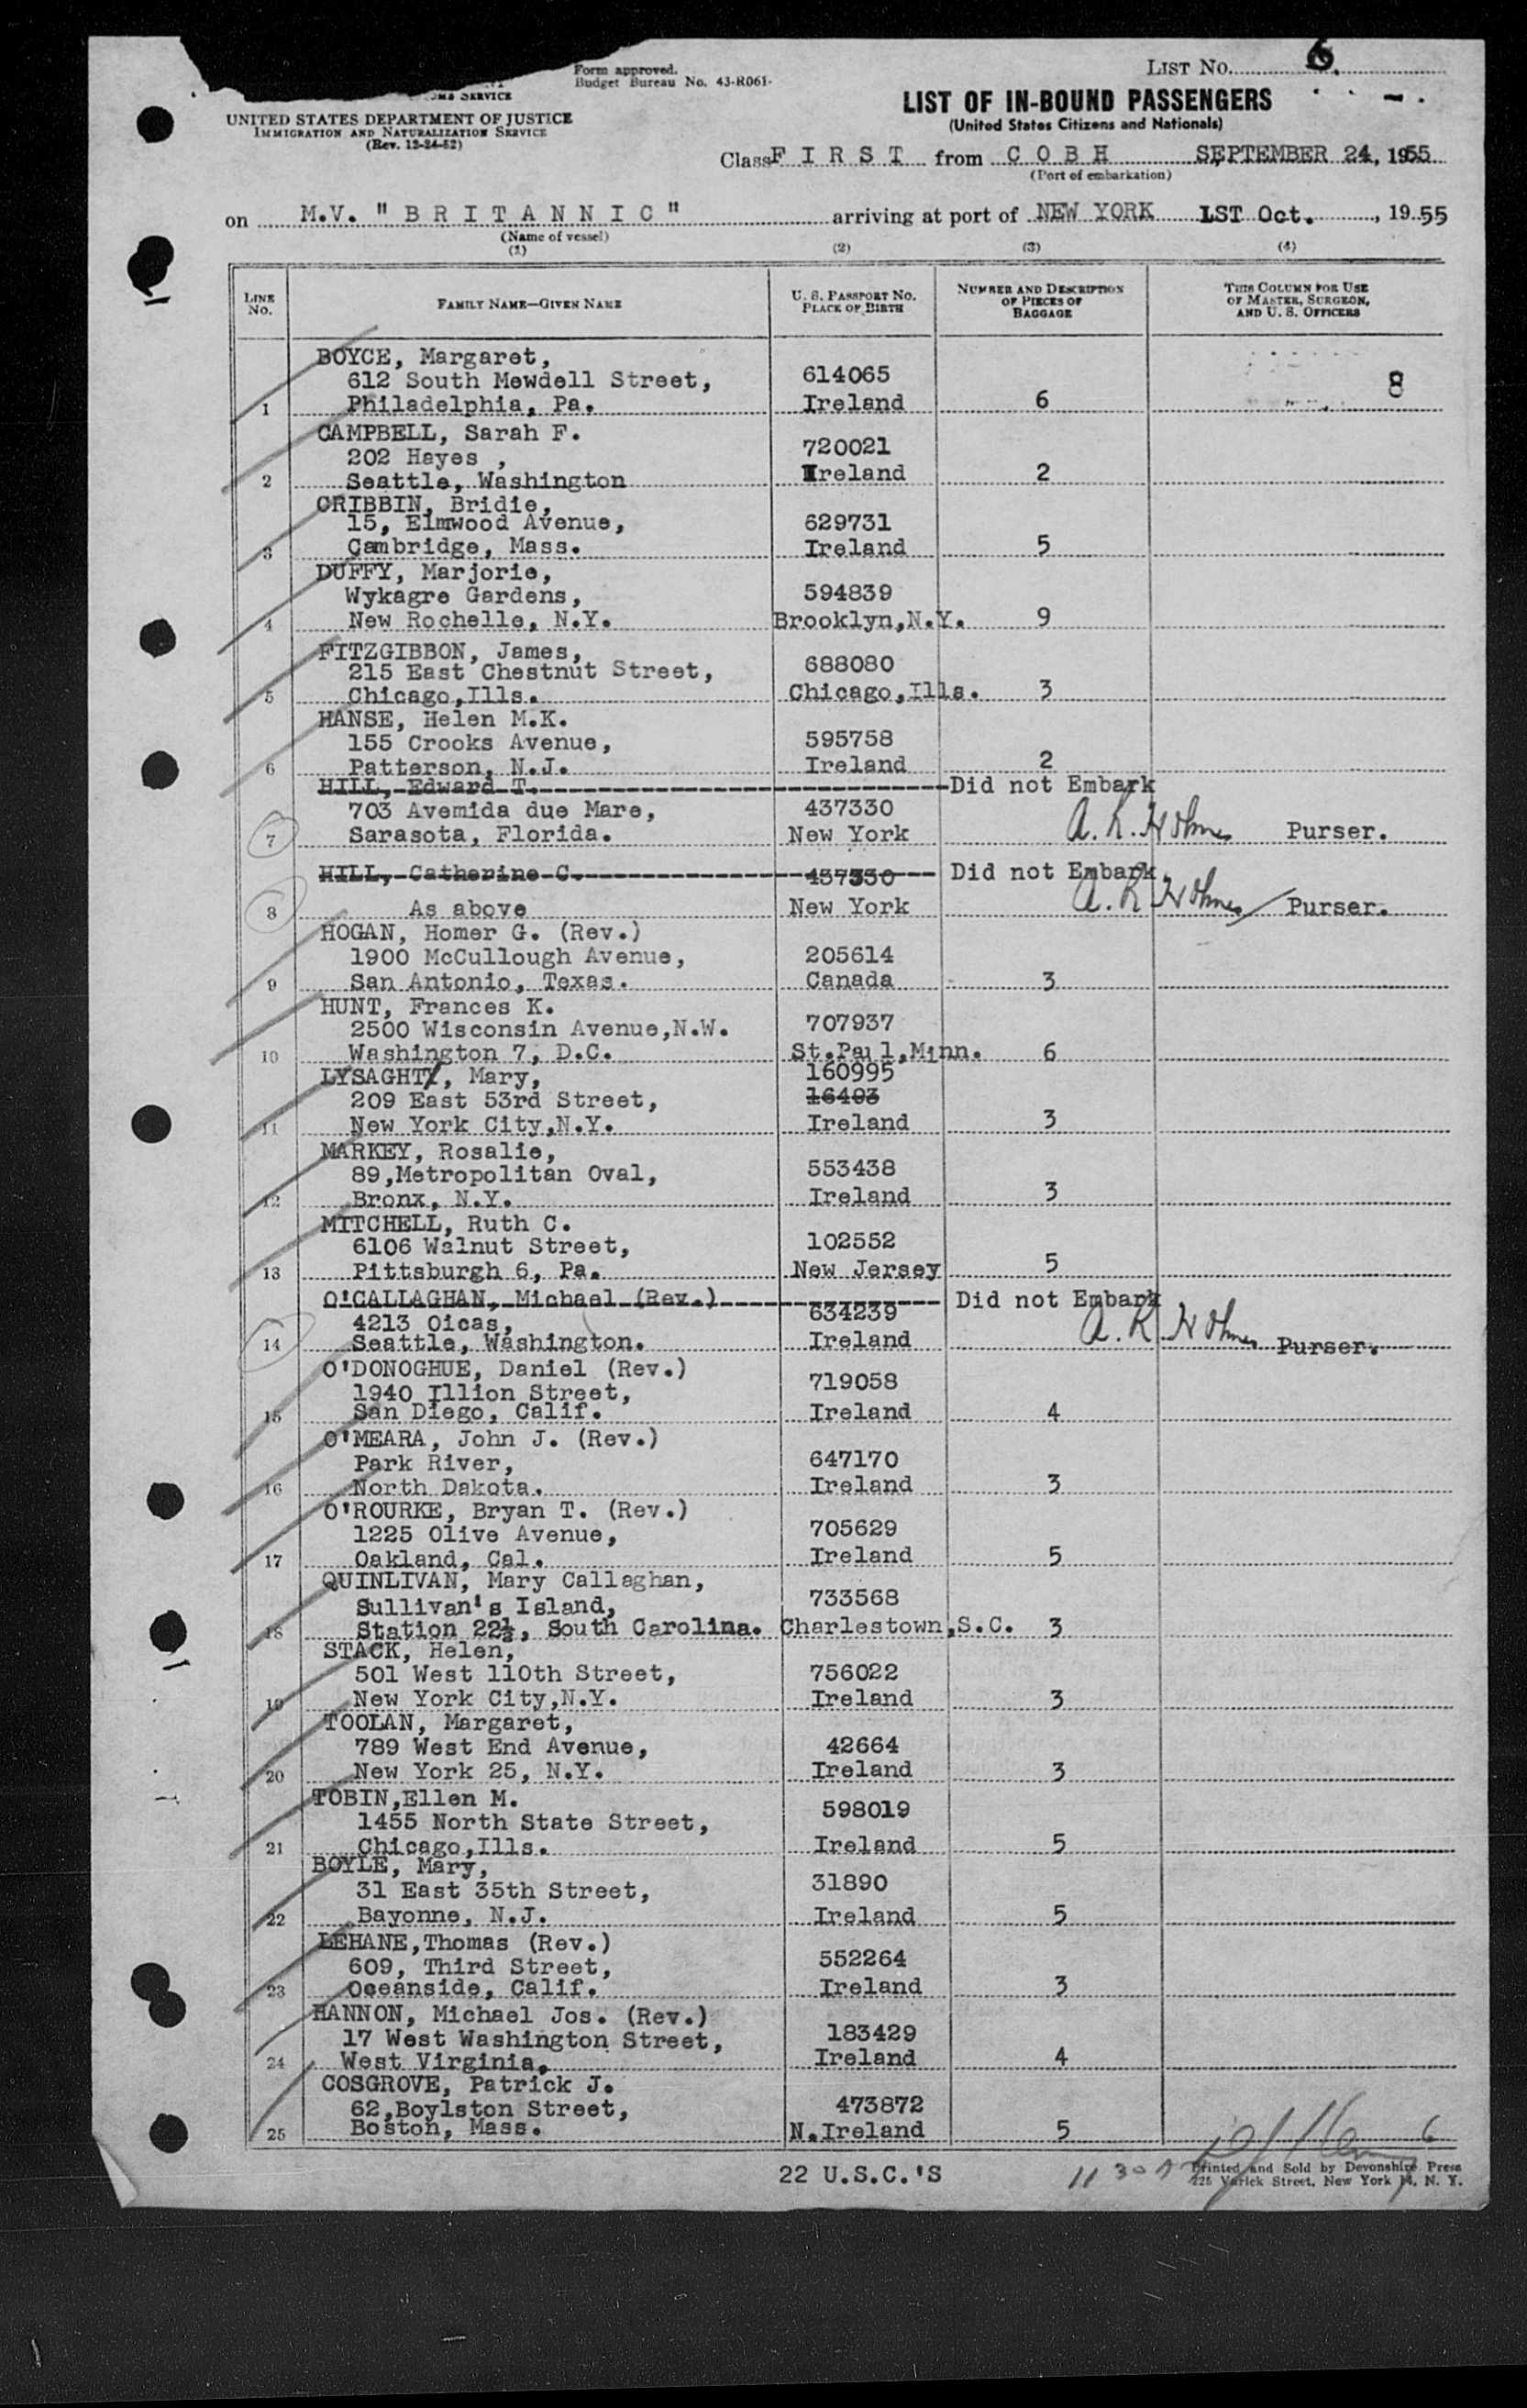 Form approved.
Budget Bureau No. 43-R061-
LIST No. 6.
SERVICE
UNITED STATES DEPARTMENT OF JUSTICE
IMMIGRATION AND NATURALIZATION SERVICE
(Rev. 12-24-52)
LIST OF IN-BOUND PASSENGERS
(United States Citizens and Nationals)
Class FIRST from COBH SEPTEMBER 24, 1955
(Port of embarkation)
on M.V. "BRITANNIC" arriving at port of NEW YORK 1ST Oct., 1955
(Name of vessel)
(1) (2) (3) (4)
LINE No. FAMILY NAME—GIVEN NAME U. S. PASSPORT No. PLACE OF BIRTH NUMBER AND DESCRIPTION OF PIECES OF BAGGAGE THIS COLUMN FOR USE OF MASTER, SURGEON, AND U. S. OFFICERS
BOYCE, Margaret,
612 South Mewdell Street, 614065 8
1 Philadelphia, Pa. Ireland 6
CAMPBELL, Sarah F.
202 Hayes , 720021
2 Seattle, Washington Ireland 2
CRIBBIN, Bridie,
15, Elmwood Avenue, 629731
3 Cambridge, Mass. Ireland 5
DUFFY, Marjorie,
Wykagre Gardens, 594839
4 New Rochelle, N.Y. Brooklyn,N.Y. 9
FITZGIBBON, James,
215 East Chestnut Street, 688080
5 Chicago,Ills. Chicago,Ills. 3
HANSE, Helen M.K.
155 Crooks Avenue, 595758
6 Patterson, N.J. Ireland 2
HILL, Edward T. Did not Embark
703 Avemida due Mare, 437330
7 Sarasota, Florida. New York A. R. Holmes Purser.
HILL, Catherine C. 437330 Did not Embark
8 As above New York A. R. Holmes Purser.
HOGAN, Homer G. (Rev.)
1900 McCullough Avenue, 205614
9 San Antonio, Texas. Canada 3
HUNT, Frances K.
2500 Wisconsin Avenue,N.W. 707937
10 Washington 7, D.C. St.Paul,Minn. 6
LYSAGHTY, Mary, 160995
209 East 53rd Street, 16493
11 New York City,N.Y. Ireland 3
MARKEY, Rosalie,
89,Metropolitan Oval, 553438
12 Bronx, N.Y. Ireland 3
MITCHELL, Ruth C.
6106 Walnut Street, 102552
13 Pittsburgh 6, Pa. New Jersey 5
O'CALLAGHAN, Michael (Rev.) Did not Embark
4213 Oicas, 634239
14 Seattle, Washington. Ireland A. R. Holmes Purser.
O'DONOGHUE, Daniel (Rev.)
1940 Illion Street, 719058
15 San Diego, Calif. Ireland 4
O'MEARA, John J. (Rev.)
Park River, 647170
16 North Dakota. Ireland 3
O'ROURKE, Bryan T. (Rev.)
1225 Olive Avenue, 705629
17 Oakland, Cal. Ireland 5
QUINLIVAN, Mary Callaghan,
Sullivan's Island, 733568
18 Station 22½, South Carolina. Charlestown,S.C. 3
STACK, Helen,
501 West 110th Street, 756022
19 New York City,N.Y. Ireland 3
TOOLAN, Margaret,
789 West End Avenue, 42664
20 New York 25, N.Y. Ireland 3
TOBIN,Ellen M.
1455 North State Street, 598019
21 Chicago,Ills. Ireland 5
BOYLE, Mary,
31 East 35th Street, 31890
22 Bayonne, N.J. Ireland 5
LEHANE,Thomas (Rev.)
609, Third Street, 552264
23 Oceanside, Calif. Ireland 3
HANNON, Michael Jos. (Rev.)
17 West Washington Street, 183429
24 West Virginia. Ireland 4
COSGROVE, Patrick J.
62,Boylston Street, 473872
25 Boston, Mass. N.Ireland 5 6
22 U.S.C.'S
Printed and Sold by Devonshire Press
225 Varick Street, New York 14, N. Y.